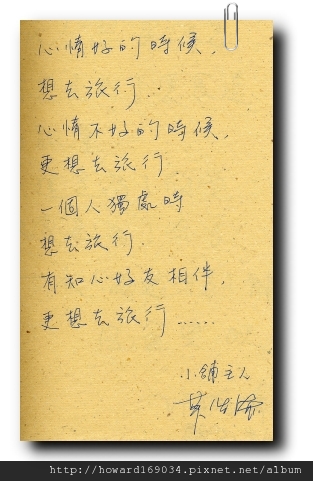 心情好的時候，
想去旅行
心情不好的時候，
更想去旅行
一個人獨處時
想去旅行
有知心好友相伴，
更想去旅行……
小舖主人
http://howard169034.pixnet.net/album